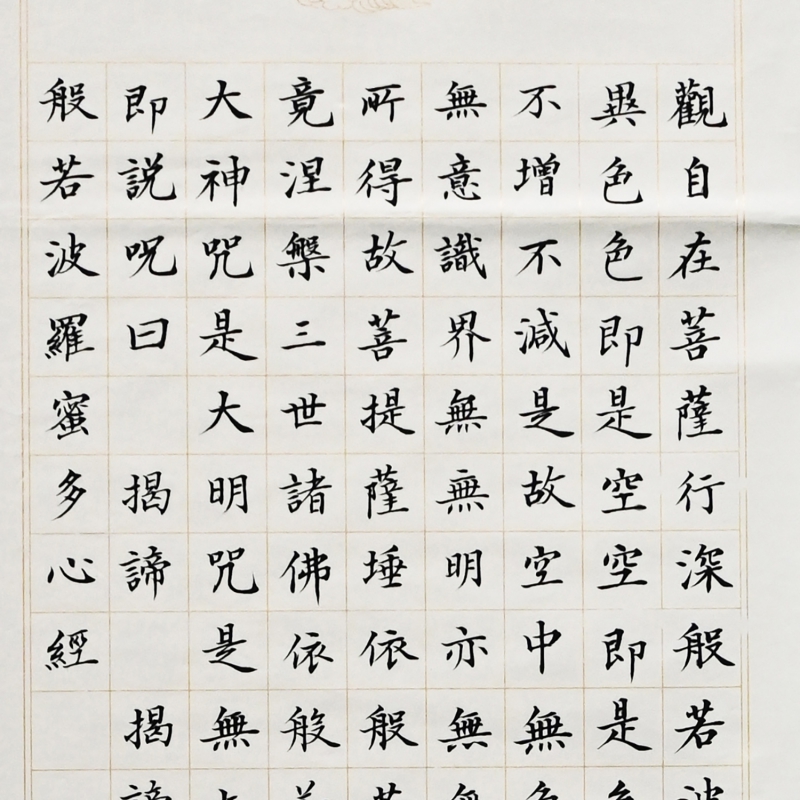 觀自在菩薩行深般若波
異色色即是空空即是色
不增不減是故空中無色
無意識界無無明亦無無
所得故菩提薩埵依般若
竟涅槃三世諸佛依般若
大神咒是大明咒是無上
即說呪曰 揭諦 揭諦
般若波羅蜜多心經